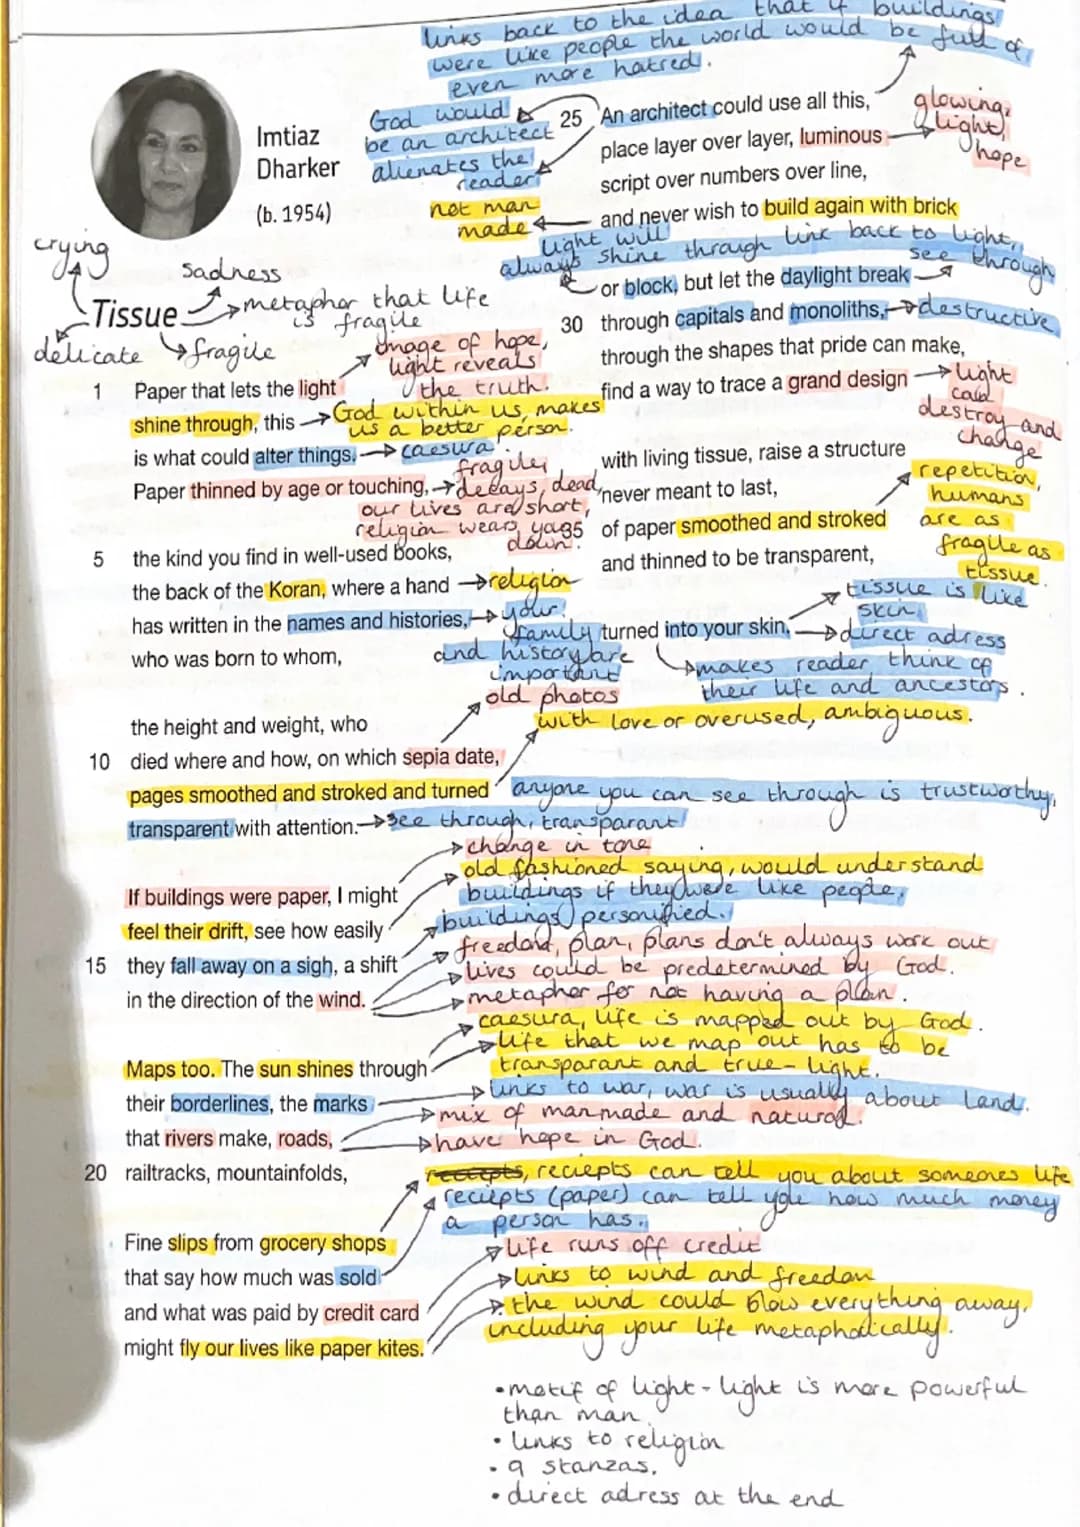 links back to the idea that if buildings
were like people the world would be full of
even more hatred.
Imtiaz
Dharker
(b. 1954)
God would
be an architect
alienates the
reader
not man
made
crying
sadness
Tissue
metaphor that life
is fragile
delicate
fragile
image of hope,
light reveals
the truth.
1 Paper that lets the light
shine through, this
God within us, makes
us a better person.
is what could alter things.
caesura.
Paper thinned by age or touching,
fragile,
decays, dead,
our lives are short,
religion wears you
down.
5 the kind you find in well-used books,
the back of the Koran, where a hand
religion
has written in the names and histories,
your
family
and history are
important
who was born to whom,
old photos
the height and weight, who
with love or overused, ambiguous.
10 died where and how, on which sepia date,
pages smoothed and stroked and turned
anyone you can see through is trustworthy,
transparent with attention.
see through, transparant
change in tone
old fashioned saying, would understand
buildings if they were like people,
buildings personified.
If buildings were paper, I might
feel their drift, see how easily
15 they fall away on a sigh, a shift
in the direction of the wind.
freedom, plan, plans don't always work out
lives could be predetermined by God.
metaphor for not having a plan.
caesura, life is mapped out by God.
life that we map out has to be
transparant and true - light.
Maps too. The sun shines through
their borderlines, the marks
links to war, war is usually about land.
mix of manmade and natural.
that rivers make, roads,
have hope in God.
20 railtracks, mountainfolds,
reciepts can tell you about someones life
reciepts (paper) can tell you how much money
a person has.
Fine slips from grocery shops
life runs off credit
that say how much was sold
links to wind and freedom
and what was paid by credit card
the wind could blow everything away,
including your life metaphorically.
might fly our lives like paper kites.
25 An architect could use all this,
place layer over layer, luminous
glowing,
light,
hope
script over numbers over line,
and never wish to build again with brick
light will
always shine through link back to light,
see through
or block, but let the daylight break
30 through capitals and monoliths,
destructive
through the shapes that pride can make,
find a way to trace a grand design
light
could
destroy and
change
with living tissue, raise a structure
never meant to last,
repetition,
humans
are as
fragile as
tissue.
35 of paper smoothed and stroked
and thinned to be transparent,
tissue is like
skin
turned into your skin.
direct adress
makes reader think of
their life and ancestors.
•motif of light - light is more powerful
than man.
• links to religion
• 9 stanzas.
• direct adress at the end